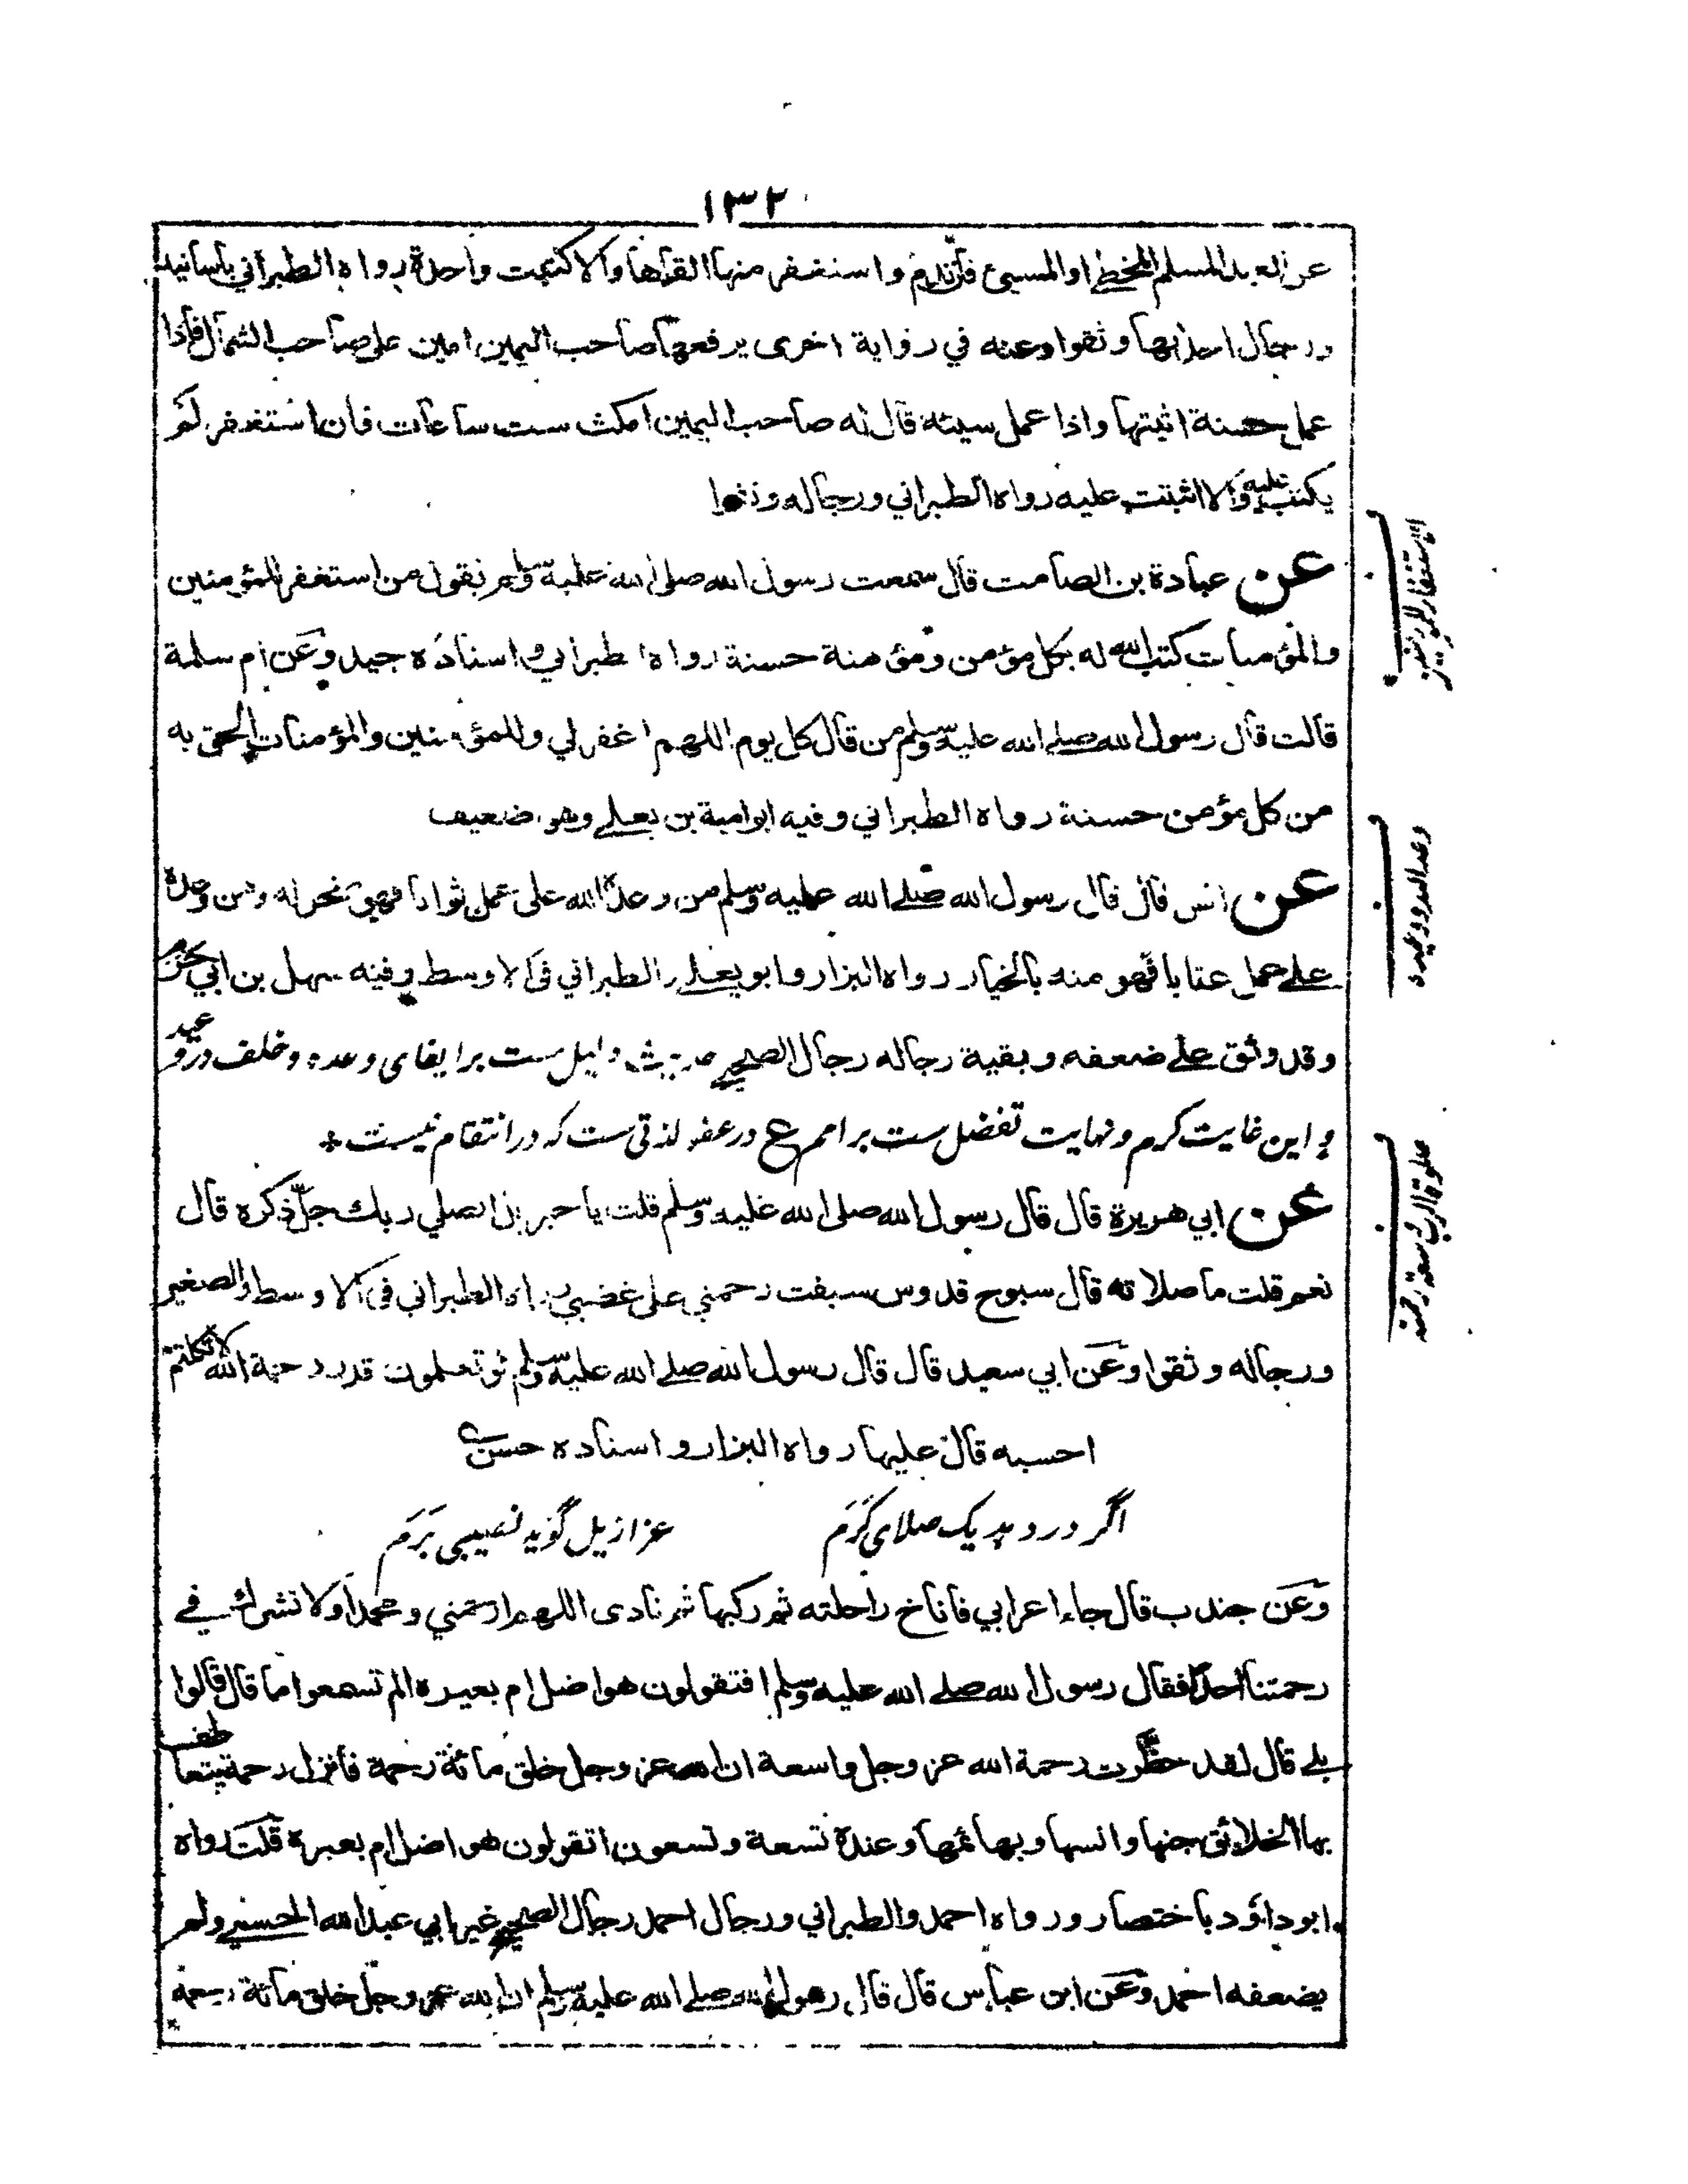 ١٣٢
عن العبد المسلم المخطئ او المسيئ فان ندم واستغفر منها القاها والا كتبت واحدة رواه الطبراني باسانيد
ورجال احدها وثقوا وعنه في رواية اخرى يرفعه صاحب اليمين امين على صاحب الشمال فاذا
عمل حسنة اثبتها واذا عمل سيئة قال له صاحب اليمين امكث ست ساعات فان استغفر لم
يكتب عليه والا اثبتت عليه رواه الطبراني ورجاله وثقوا
عن عبادة بن الصامت قال سمعت رسول الله صلى الله عليه وسلم يقول من استغفر للمؤمنين
والمؤمنات كتب الله له بكل مؤمن ومؤمنة حسنة رواه الطبراني واسناده جيد وعن ام سلمة
قالت قال رسول الله صلے الله عليه وسلم من قال كل يوم اللهم اغفر لي وللمؤمنين والمؤمنات الحق به
من كل مؤمن حسنة رواه الطبراني وفيه ابو امية بن يعلے وهو ضعيف
عن انس قال قال رسول الله صلے الله عليه وسلم من وعده الله على عمل ثوابا فهو منجز له ومن وعده
علے عمل عقابا فهو منه بالخيار رواه البزار وابو يعلے والطبراني في الاوسط وفيه سهل بن ابي حزم
وقد وثق علے ضعفه وبقية رجاله رجال الصحيح حديث دليل ست بر ايفاى وعده وخلف در وعيد
و اين غايت كرم ونهايت تفضل ست بر امم ع در عفو لذتى ست كه در انتقام نيست +
عن ابي هريرة قال قال رسول الله صلى الله عليه وسلم قلت يا جبريل ايصلي ربك جل ذكره قال
نعم قلت ما صلاته قال سبوح قدوس سبقت رحمتي على غضبي رواه الطبراني في الاوسط والصغير
ورجاله وثقوا وعن ابي سعيد قال قال رسول الله صلے الله عليه وسلم لو تعلمون قدر رحمة الله لاتكلتم
احسبه قال عليها رواه البزار واسناده حسن
اگر در دهد يك صلاى كرم عزازيل گويد نصيبى برم
وعن جندب قال جاء اعرابي فاناخ راحلته ثم ركبها ثم نادى اللهم ارحمني ومحمدا ولا تشرك في
رحمتنا احدا فقال رسول الله صلے الله عليه وسلم افتقولون هو اضل ام بعيره الم تسمعوا ما قال قالوا
بلے قال لقد حظرت رحمة الله عز وجل واسعة ان الله عز وجل خلق مائة رحمة فانزل رحمة يتعاطف
بها الخلائق جنها وانسها وبهائمها وعنده تسعة وتسعون اتقولون هو اضل ام بعيره قلت رواه
ابو داؤد باختصار ورواه احمد والطبراني ورجال احمد رجال الصحيح غير ابي عبد الله الحسني ولم
يضعفه احمد وعن ابن عباس قال قال رسول الله صلے الله عليه وسلم ان الله عز وجل خلق مائة رحمة
وعد الله ووعيده
صلوة الرب سعة رحمته